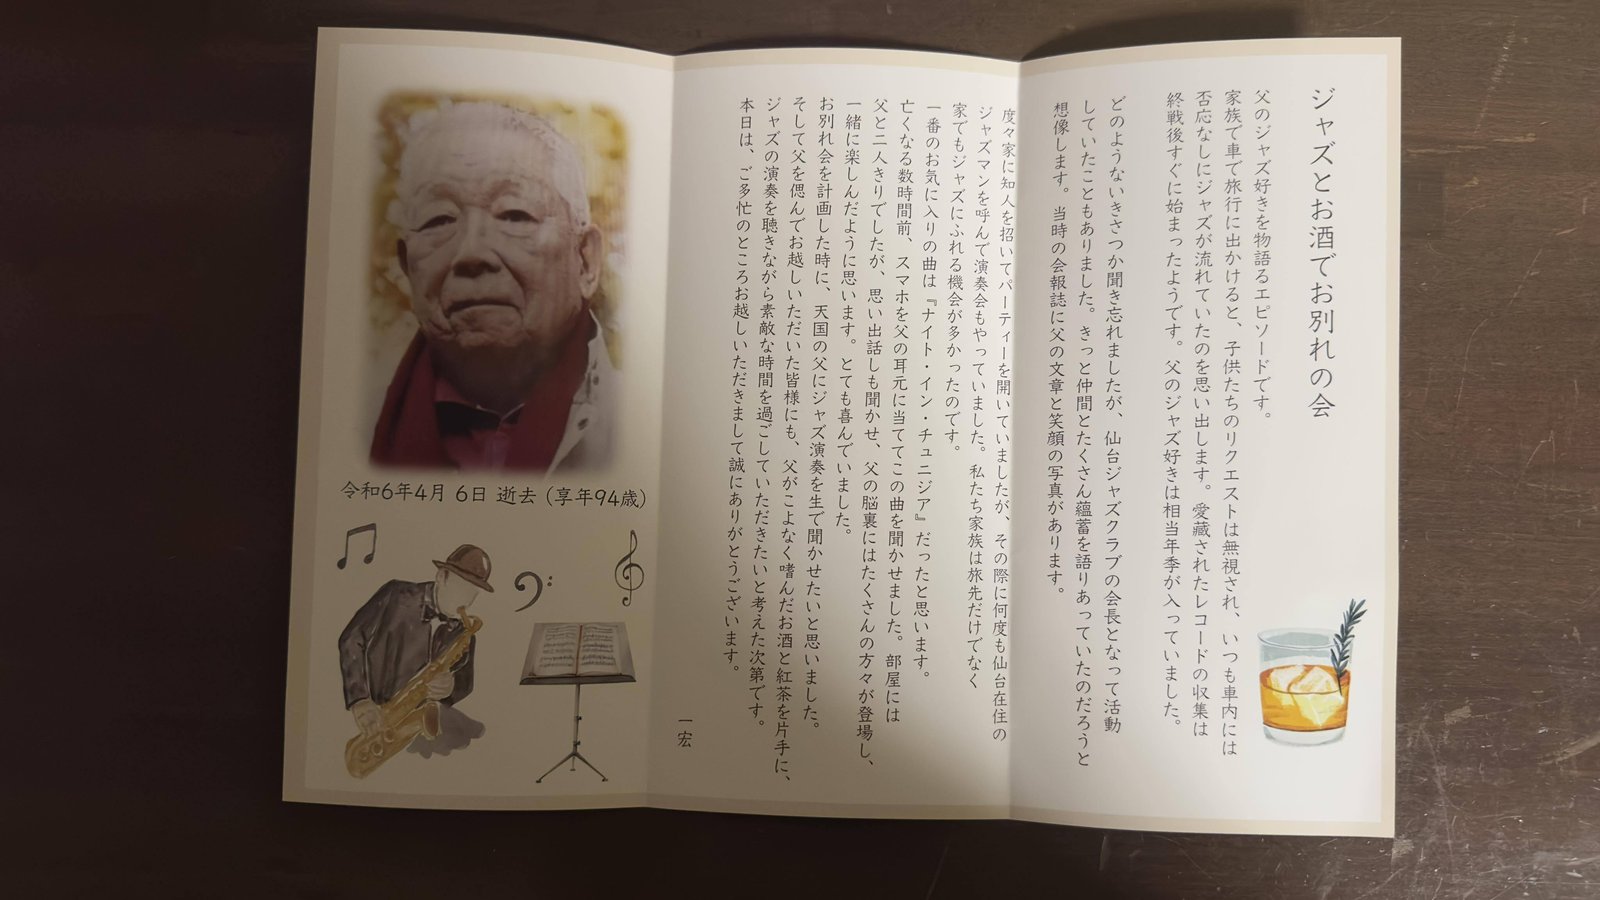 ジャズとお酒でお別れの会
父のジャズ好きを物語るエピソードです。
家族で車で旅行に出かけると、子供たちのリクエストは無視され、いつも車内には
否応なしにジャズが流れていたのを思い出します。愛蔵されたレコードの収集は
終戦後すぐに始まったようです。父のジャズ好きは相当年季が入っていました。
どのようないきさつか聞き忘れましたが、仙台ジャズクラブの会長となって活動
していたこともありました。きっと仲間とたくさん蘊蓄を語りあっていたのだろうと
想像します。当時の会報誌に父の文章と笑顔の写真があります。
度々家に知人を招いてパーティーを開いていましたが、その際に何度も仙台在住の
ジャズマンを呼んで演奏会もやっていました。私たち家族は旅先だけでなく
家でもジャズにふれる機会が多かったのです。
一番のお気に入りの曲は『ナイト・イン・チュニジア』だったと思います。
亡くなる数時間前、スマホを父の耳元に当ててこの曲を聞かせました。部屋には
父と二人きりでしたが、思い出話しも聞かせ、父の脳裏にはたくさんの方々が登場し、
一緒に楽しんだように思います。とても喜んでいました。
お別れ会を計画した時に、天国の父にジャズ演奏を生で聞かせたいと思いました。
そして父を偲んでお越しいただいた皆様にも、父がこよなく嗜んだお酒と紅茶を片手に、
ジャズの演奏を聴きながら素敵な時間を過ごしていただきたいと考えた次第です。
本日は、ご多忙のところお越しいただきまして誠にありがとうございます。
一宏
令和6年4月 6日 逝去 (享年94歳)